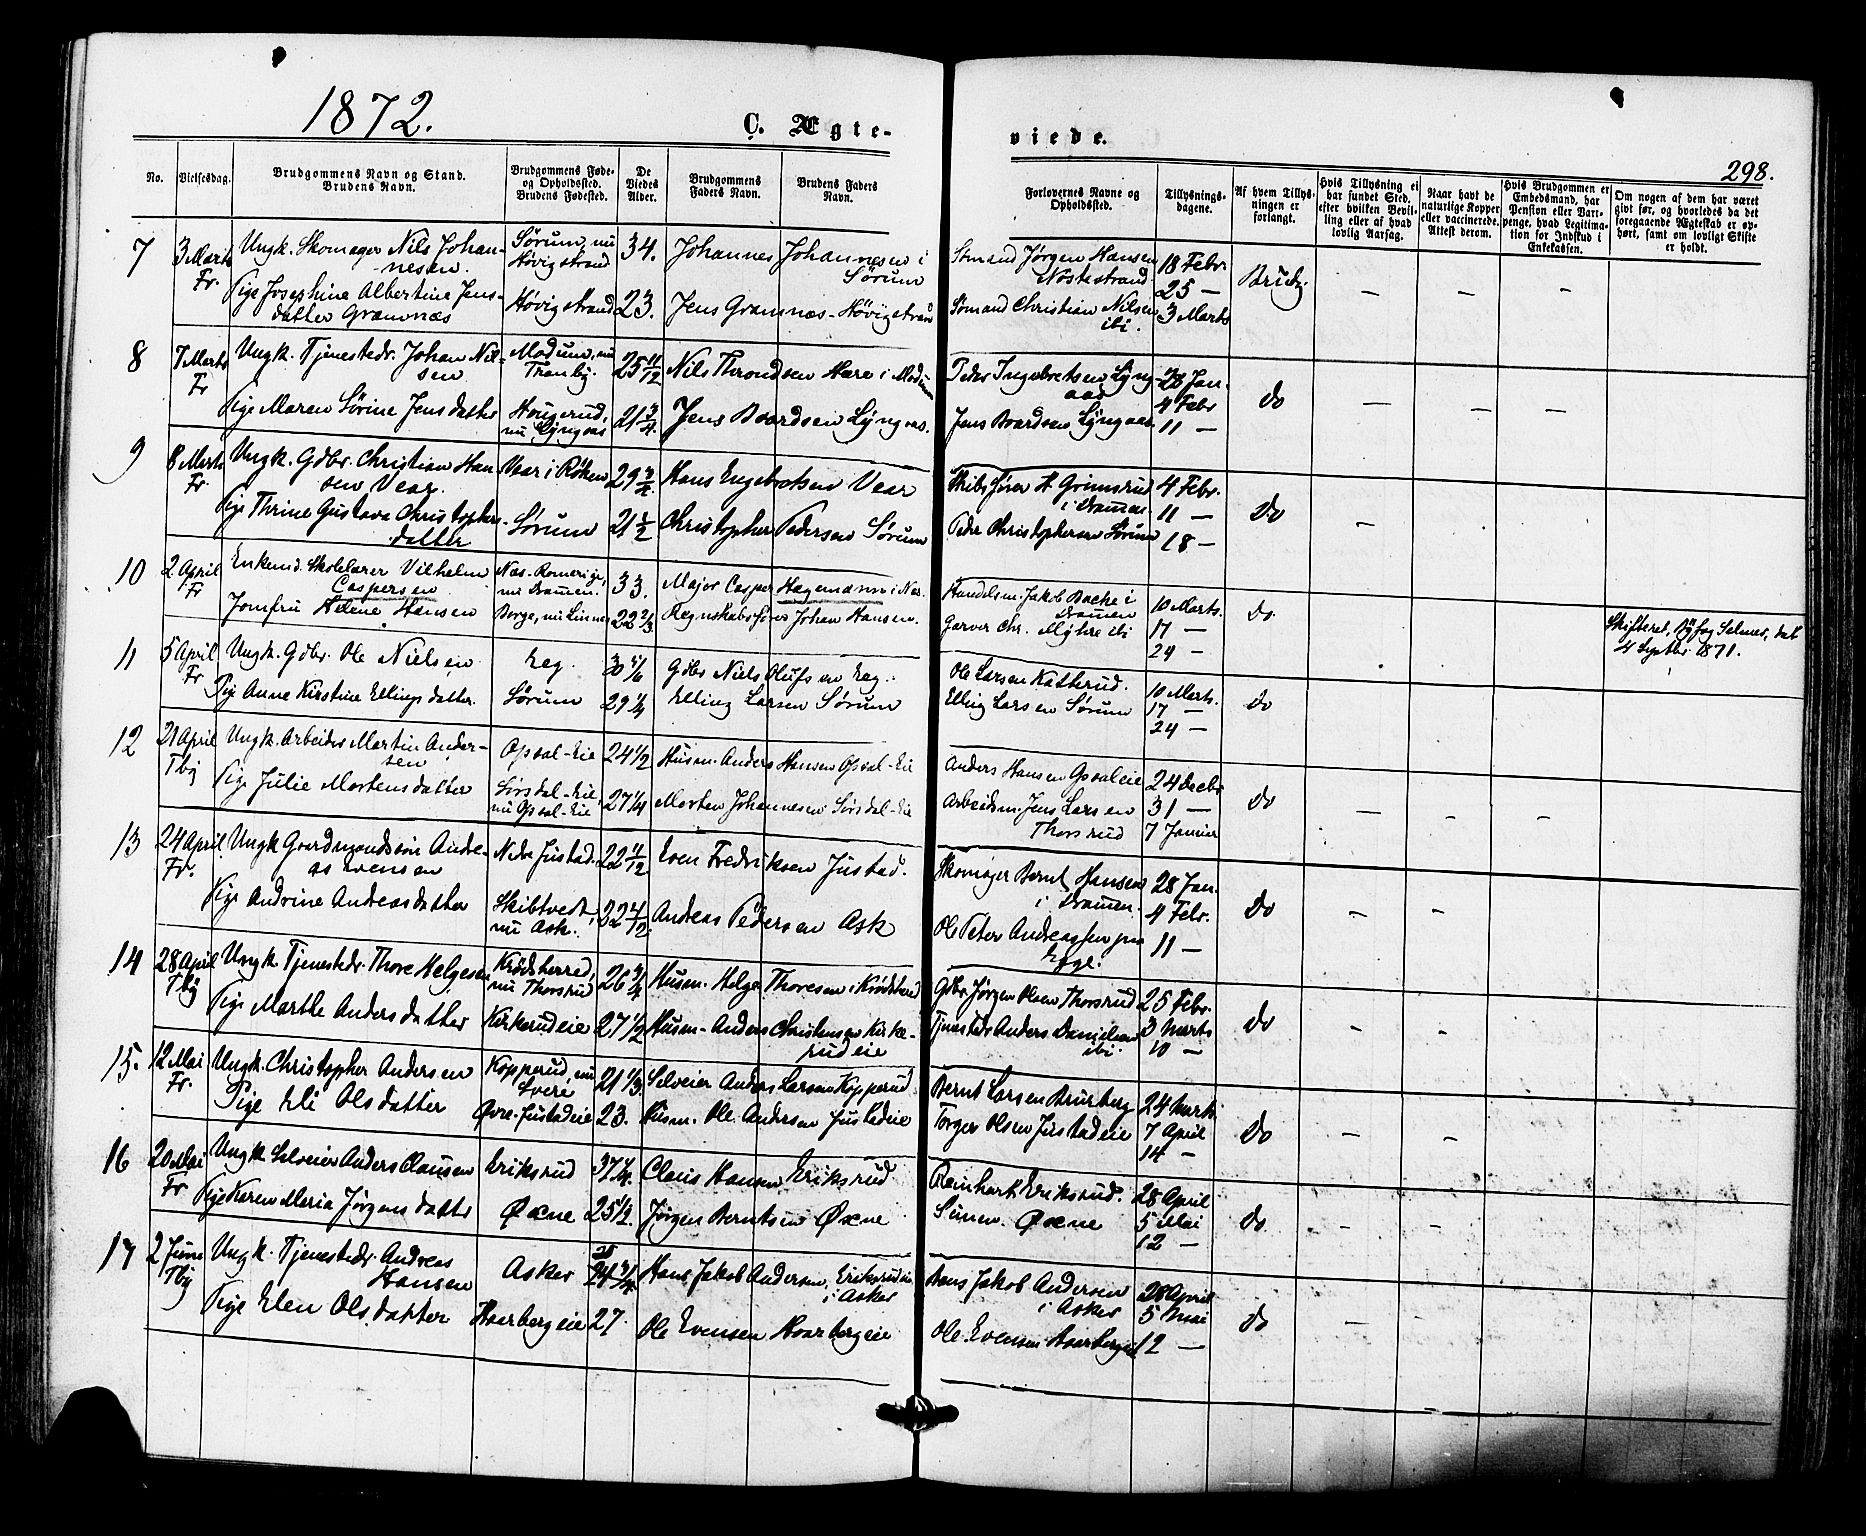 1872.
C. Ægte-
viede.
298.
No.
Vielsesdag.
Brudgommens Navn og Stand.
Brudens Navn.
Brudgommens Føde-
og Opholdssted.
Brudens Fødested.
De
Viedes
Alder.
Brudgommens
Faders Navn.
Brudens Faders
Navn.
Forlovernes Navne og
Opholdssted.
Tillysnings-
dagene.
Af hvem Tillys-
ningen er
forlangt.
Hvis Tillysning ei
har fundet Sted,
efter hvilken Bevil-
ling eller af hvad
lovlig Aarsag.
Naar havt de
naturlige Kopper
eller vaccinerede.
Attest derom.
Hvis Brudgommen er
Embedsmand, har
Pension eller Vart-
penge, hvad Legitima-
tion for Indskud i
Enkekassen.
Om nogen af dem har været
givt før, og hvorledes da det
foregaaende Ægteskab er op-
hørt, samt om lovligt Skifte
er holdt.
7 3 Marts Ungk. Skomager Nils Johan- Sørum, nu 34. Johannes Johannesen i
Fr. nesen. Høvigstrand Sørum
Pige Josephine Albertine Jens- Høvigstrand 23. Jens Gramnæs - Høvigstrand
datter Gramnæs
Sømand Jørgen Hansen 18 Febr. Brudg. — — —
Nøstestrand 25 —
Sømand Christian Nilsen 3 Marts
ibi.
8 7 Marts Ungk. Tjenestedr. Johan Nil- Modum, nu 25 11/12 Nils Throndsen Hære i Modum
Fr sen Tranby.
Pige Maren Sørine Jensdatter Hougerud, 21 3/4 Jens Boardsen Lyngaas.
nu Lyngaas
Peder Ingebretsen Lyng- 28 Jan. Do — — —
aas 4 Febr
Jens Boardsen Lyngaas. 11 —
9 8 Marts Ungk. Gdbr. Christian Han Vear i Røken 29 3/4 Hans Engebretsen Vear
Fr. sen Vear.
Pige Thrine Gustava Christopher- Sørum 21 1/2 Christopher Pedersen Sørum
datter
Skibsfører H. Grimsrud 4 Febr. Do —
i Dramen. 11 —
Peder Christophersen Sørum 18 —
10 2 April Enkemd. Skolelærer Vilhelm Næs-Romerige, 33. Major Casper Hagemann i Næs.
Fr Caspersen nu Dramen.
Jomfru Helene Hansen Berge, nu Linnes 22 2/3 Regnskabsfører Johan Hansen.
Handelsm. Jakob Bache i 10 Marts. Do.
Dramen 17 —
Garver Chr. Myhre ibi 24 —
Skifteret, Byfog Selmer, dat
4 Septbr 1871.
11 5 April Ungk. Gdbr. Ole Nielsen Eeg. 30 5/6 Gdbr Niels Olufsen Eeg.
Fr Pige Anne Kirstine Ellingsdatter. Sørum 29 1/4 Elling Larsen Sørum
Ole Larsen Katterud. 10 Marts. Do
Elling Larsen Sørum 17 —
24 —
12 21 April Ungk. Arbeider Martin Ander- Opsal-Eie 24 1/2 Husm. Anders Hansen Opsal-Eie
Tby sen
Pige Julie Mortensdatter Sørsdal-Eie, 27 1/4 Morten Johannesen Sørsdal-Eie
nu Opsal-Eie
Anders Hansen Opsaleie 24 Decbr Do — — —
Arbeidsm. Jens Larsen 31 —
Thorsrud 7 Januar
13 24 April Ungk Gaardmandssøn Andre- Nedre Justad. 22 11/12 Even Fredriksen Justad.
Fr. as Evensen
Pige Andrine Andreasdatter Skibtvedt, 22 4/12. Andreas Pedersen Ask
nu Ask.
Skomager Bernt Hansen 28 Jan. Do — —
i Dramen. 4 Febr.
Ole Peter Andreassen 11 —
Egge.
14 28 April Ungk. Tjenestedr. Thore Helgesen Krødsherred, 26 3/4 Husm. Helge Thoresen i Krødsherred
Tby nu Thorsrud
Pige Marthe Andersdatter Kirkerudeie 27 1/2 Husm. Anders Christensen Kirke-
rudeie
Gdbr Jørgen Olsen Thorsrud 25 Febr. Do — —
Tjenestedr Anders Danielsen 3 Marts
ibi. 10 —
15. 12 Mai Ungk. Christopher Andersen Kopperud, nu 21 1/3 Selveier Anders Larsen Kopperud
Fr. Lvere
Pige Eli Olsdatter Øvre-Justadeie 23. Husm. Ole Andersen Justadeie
Bernt Larsen Bruberg 24 Marts Do — —
Torger Olsen Justadeie 7 April
14 —
16 20 Mai Ungk. Selveier Anders Clausen Eriksrud 37 1/4. Claus Hansen Eriksrud
Fr Pige Karen Maria Jørgensdatter Øxne 25 1/2. Jørgen Berntsen Øxne
Reinhart Eriksrud. 28 April Do — —
Simen Øxne 5 Mai
12 —
17 2 Juni Ungk. Tjenestedr. Andreas Asker 24 3/4 Hans Jakob Andersen, Eriksrudeie
Tby Hansen i Asker
Pige Elen Olsdatter Haarbergeie 27. Ole Evensen Haarbergeie
Hans Jakob Andersen 28 April Do — —
i Asker 5 Mai
Ole Evensen Haarbergeie 12 —